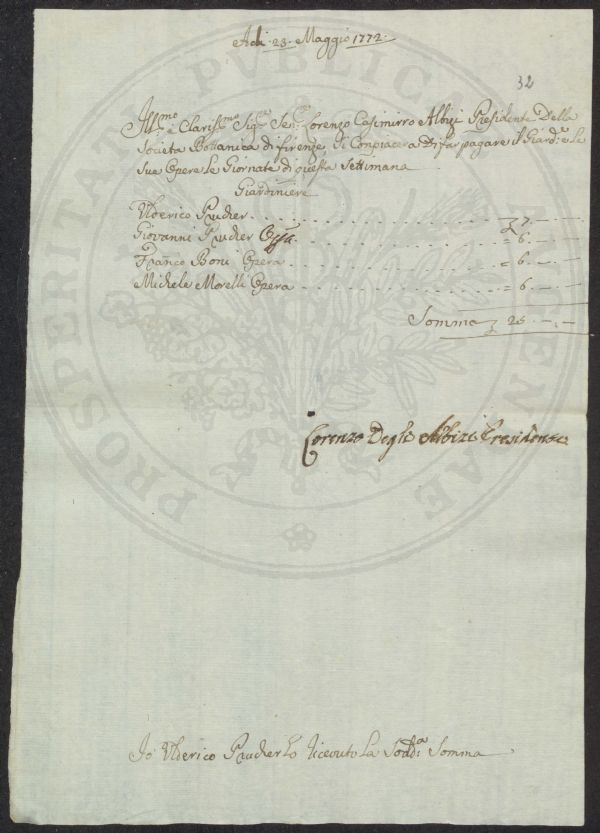 Adi 23 Maggio 1772
32
Ill.mo e Clariss.mo Sig.re Sen.re Lorenzo Casimirro Albizi Presidente Della
Societa Bottanica di firenze Si Conpiacera Di far pagare il Giard.e e Le
Sue Opere Le Giornate di questa Settimana
Giardiniere
Ulderico Prucher 7
Giovanni Prucher 6
Franco Boni Opera 6
Michele Morelli Opera 6
Somma 25
Lorenzo Degli Albizi Presidente
Io Ulderico Prucher ho ricevuto La Sodd.a Somma
PROSPERITATI PVBLICAE AVGENDAE